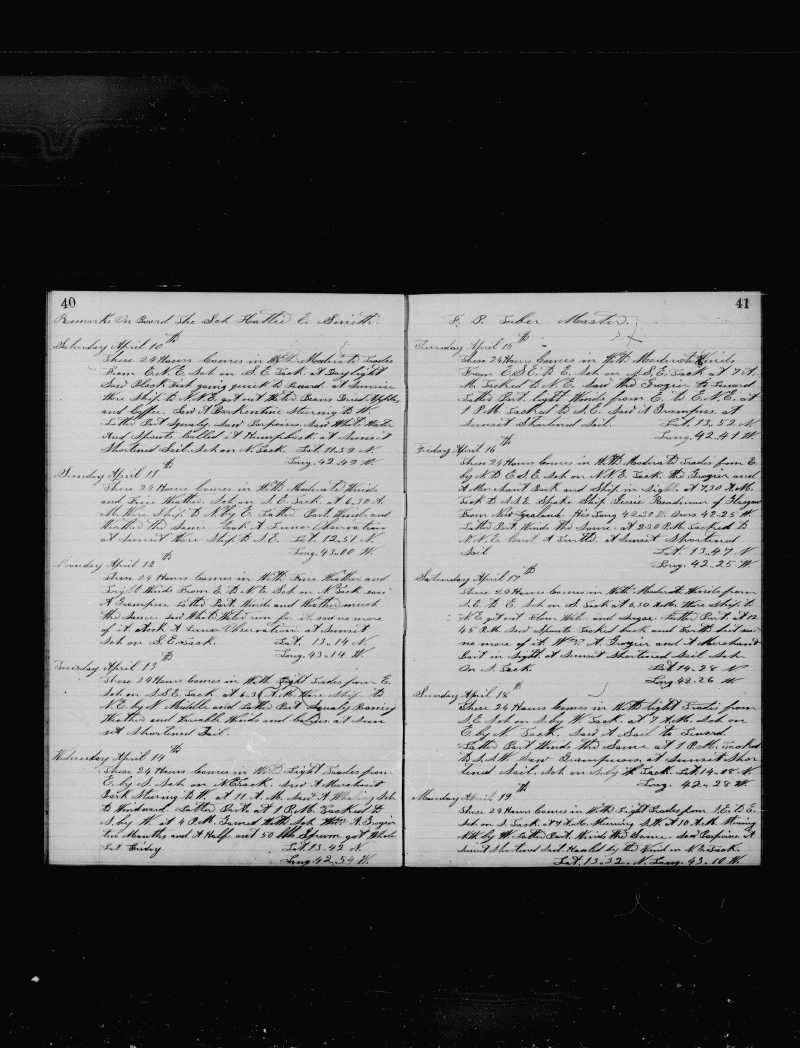 40
Remarks On Board The Sch Hattie E. Smith.
Saturday April 10th
These 24 Hours Comes in With Moderate Trades
From E.N.E. Sch on S.E. Tack. at Daylight
Saw Black Fish going quick to Leward. at Sunrise
Wore Ship to N.N.E. got out Beans Dried Apples
and Coffee. Saw A Barkentine Steering to W.
Latter Part Squaly. Saw Porpoises. Saw White Water
And Spouts Called A Humpback. at Sunset
Shortned Sail. Sch on N. Tack. Lat. 11.52 N.
Long. 42.49 W.
Sunday April 11th
These 24 Hours Comes in With Moderate Winds
and Fine Weather. Sch on S.E. Tack. at 6.30 A.
M. Wore Ship to N by E. Latter Part Winds and
Weather the Same. Took A Lunar Observation
at Sunset Wore Ship to S.E. Lat. 12.51 N.
Long. 43.00 W.
Monday April 12th
These 24 Hours Comes in With Fine Weather and
Light Winds From E. to N.E. Sch on N Tack. saw
A Grampus. Latter Part Winds and Weather much
the Same. saw White Water run for it saw no more
of it. took A Lunar Observation. at Sunset
Sch on S.E. Tack. Lat. 13.14 N
Long. 43.14 W.
Tuesday April 13th
These 24 Hours Comes in With Light Trades from E.
Sch on S.S.E. Tack. at 6.30 A.M. Wore Ship to
N.E. by N. Middle and Latter Part Squaly Raining
Weather and Variable Winds and Calms. at Sun
set Shortened Sail.
Wednesday April 14th
These 24 Hours Comes in With Light Trades from
E. by N. Sch on N. Tack. Saw A Merchant
Bark Stering to W. at 11 A.M. Saw A Whaling Sch
to Windward. Latter Part at 1 P.M. Tacked to
S. by W. at 4 P.M. Gamed With Sch Wm A. Grozier
two Months and A Half out 50 bbls Sperm got Whale
Last Friday. Lat. 13.42 N.
Long. 42.54 W.
41
F. P. Taber Master.
Thursday April 15th
These 24 Hours Comes in With Moderate Winds
From E.S.E. to E. Sch on S.S.E. Tack at 7 A.
M. Tacked to N.E. saw the Grozier to Leward.
Latter Part light Winds from E. to E.N.E. at
1 P.M. Tacked to S.E. Saw A Grampus. at
Sunset Shortened Sail. Lat. 13.52 N
Long. 42.41 W.
Friday April 16th
These 24 Hours Comes in With Moderate Trades from E.
by N. to E.S.E. Sch on N.N.E. Tack. the Grozier and
A Merchant Bark and Ship in Sight. at 7.30 A.M.
Tack to S.S.E. Spoke Ship Jessie Readman of Glasgow
From New Zealand. His Long 42.30 W. Ours 42.25 W.
Latter Part Winds the Same. at 2.30 P.M. Tacked to
N.N.E. at Sunset Shortened
Sail Lat. 13.47 N
Long. 42.25 W.
Saturday April 17th
These 24 Hours Comes in With Moderate Winds from
S.E. to E. Sch on S. Tack at 6.30 A.M. Wore Ship to
N.E. got out Flour and Sugar. Latter Part at 12
45 P.M. Saw Spouts Tacked back and Forth but saw
no more of it. Wm A. Grozier and A Merchant
Bark in Sight at Sunset Shortened Sail Sch
On S. Tack. Lat. 14.28 N
Long. 42.26 W.
Sunday April 18th
These 24 Hours Comes in With light Trades from
S.E. Sch on S. by W. Tack. at 7 A.M. Sch on
E. by N. Tack. Saw A Sail to Leward.
Latter Part Winds the Same at 1 P.M. Tacked
to S.S.W. Saw Grampuses. at Sunset Shor
tened Sail. Sch on S. by W Tack. Lat. 14.08 N.
Long. 42.28 W.
Monday April 19th
These 24 Hours Comes in With Light Trades from S.E. to E.
Sch on S. Tack. at 7 A.M. Steering S.W. at 10 A.M. Stering
by W. Latter Part Winds the Same. Saw Porpoises at
Sunset Shortened Sail. Hauled by the Wind on N.E. Tack.
Lat. 13.32. N. Long. 43.10 W.